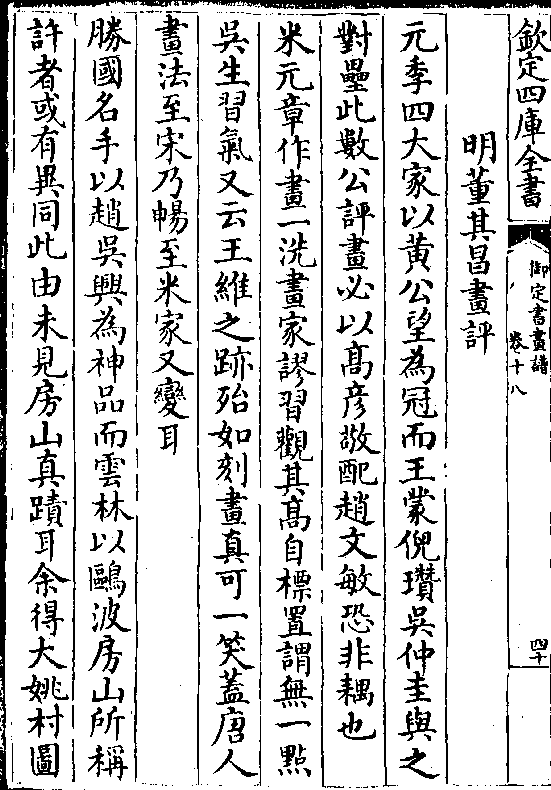 欽定四庫全書
御定書畫譜
卷十八
四十
明董其昌畫評
元季四大家以黃公望為冠而王蒙倪瓚吳仲圭與之
對壘此數公評畫必以高彥敬配趙文敏恐非耦也
米元章作畫一洗畫家謬習觀其高自標置謂無一點
吳生習氣又云王維之跡殆如刻畫真可一笑蓋唐人
畫法至宋乃暢至米家又變耳
勝國名手以趙吳興為神品而雲林以鷗波房山所稱
許者或有異同此由未見房山真蹟耳余得大姚村圖